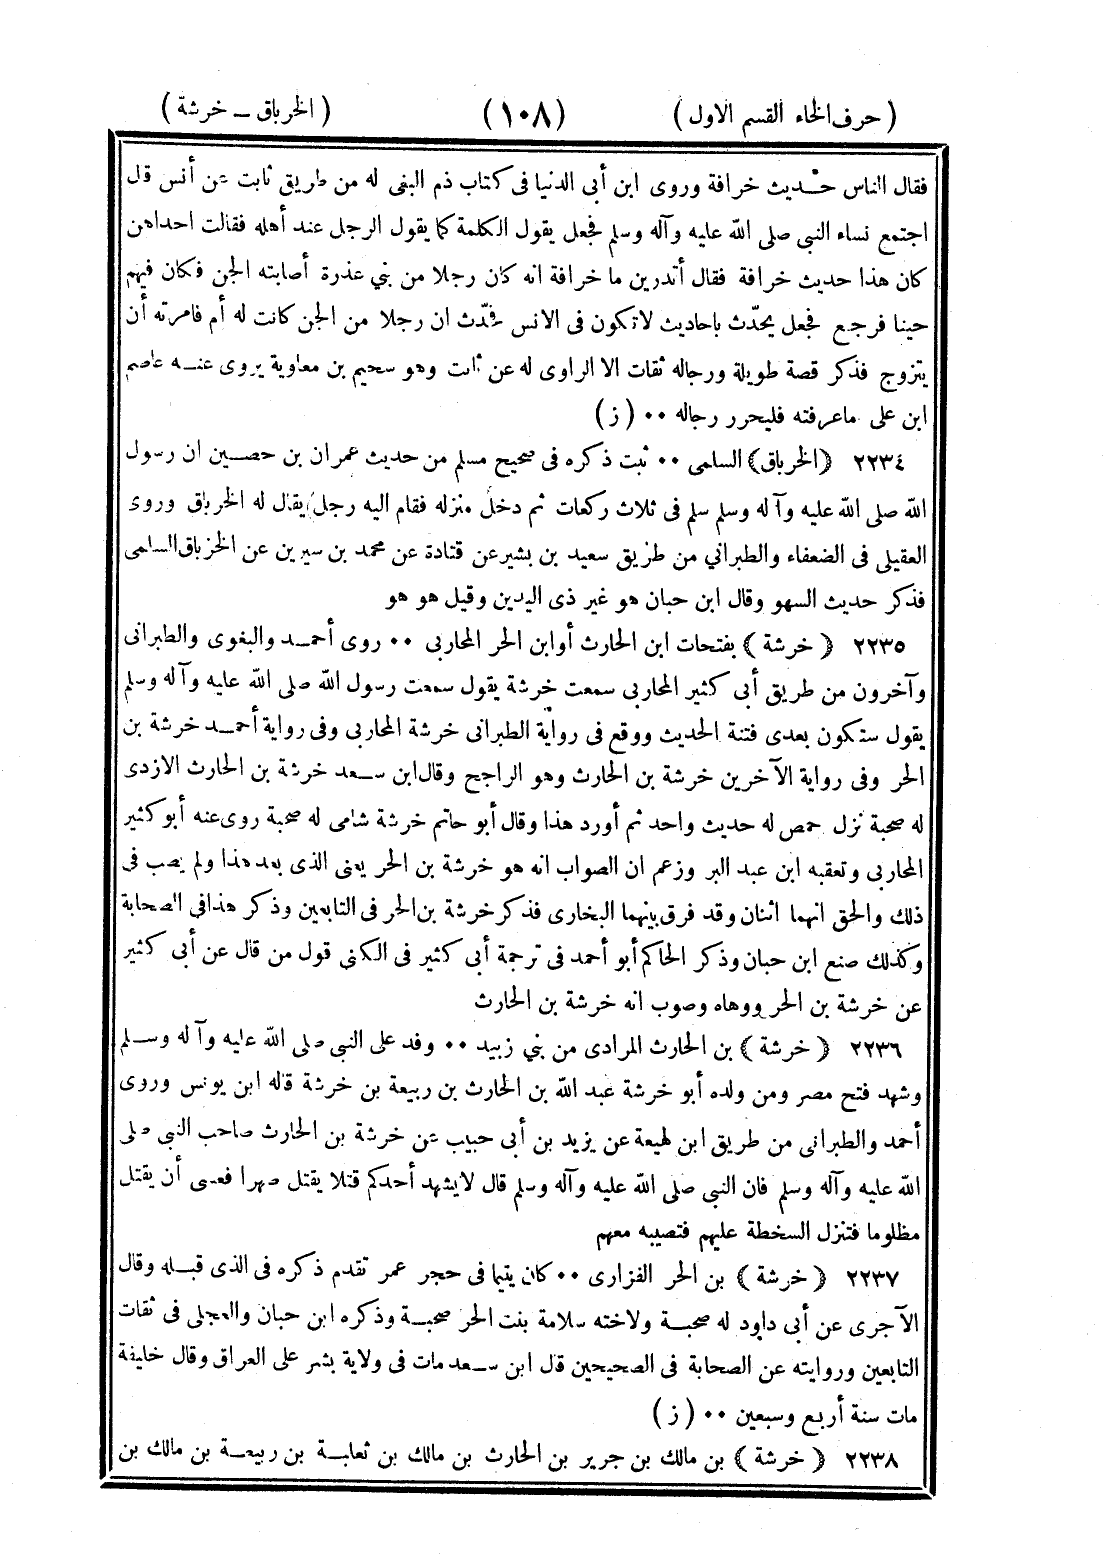 ( حرف الخاء القسم الاول ) (١٠٨) ( الخرباق ــ خرشة )
فقال الناس حديث خرافة وروى ابن أبى الدنيا فى كتاب ذم البغى له من طريق ثابت عن أنس قال
اجتمع نساء النبي صلى الله عليه وآله وسلم فجعل يقول الكلمة كما يقول الرجل عند أهله فقالت احداهن
كان هذا حديث خرافة فقال أتدرين ما خرافة انه كان رجلا من بني عذرة أصابته الجن فكان فيهم
حينا فرجع فجعل يحدّث باحاديث لاتكون فى الانس فحدّث ان رجلا من الجن كانت له أم فامرته أن
يتزوج فذكر قصة طويلة ورجاله ثقات الا الراوى له عن ثابت وهو سحيم بن معاوية يروى عنه عاصم
ابن على ماعرفته فليحرر رجاله ٠٠ ( ز )
٢٢٣٤ ﴿الخرباق﴾ السلمى ٠٠ ثبت ذكره فى صحيح مسلم من حديث عمران بن حصين ان رسول
الله صلى الله عليه وآله وسلم سلم فى ثلاث ركعات ثم دخل منزله فقام اليه رجل يقال له الخرباق وروى
العقيلى فى الضعفاء والطبراني من طريق سعيد بن بشير عن قتادة عن محمد بن سيرين عن الخرباق السلمى
فذكر حديث السهو وقال ابن حبان هو غير ذى اليدين وقيل هو هو
٢٢٣٥ ﴿ خرشة ﴾ بفتحات ابن الحارث أوابن الحر المحاربي ٠٠ روى أحمد والبغوى والطبرانى
وآخرون من طريق أبي كثير المحاربى سمعت خرشة يقول سمعت رسول الله صلى الله عليه وآله وسلم
يقول ستكون بعدى فتنة الحديث ووقع فى رواية الطبرانى خرشة المحاربى وفى رواية أحمد خرشة بن
الحر وفى رواية الآخرين خرشة بن الحارث وهو الراجح وقال ابن سعد خرشة بن الحارث الازدى
له صحبة نزل حمص له حديث واحد ثم أورد هذا وقال أبو حاتم خرشة شامى له صحبة روى عنه أبو كثير
المحاربى وتعقبه ابن عبد البر وزعم ان الصواب انه هو خرشة بن الحر يعنى الذى بعد هذا ولم يصب فى
ذلك والحق انهما اثنان وقد فرق بينهما البخارى فذكر خرشة بن الحر فى التابعين وذكر هذا فى الصحابة
وكذلك صنع ابن حبان وذكر الحاكم أبو أحمد فى ترجمة أبى كثير فى الكنى قول من قال عن أبى كثير
عن خرشة بن الحر ووهاه وصوب انه خرشة بن الحارث
٢٢٣٦ ﴿ خرشة ﴾ بن الحارث المرادى من بني زبيد ٠٠ وفد على النبي صلى الله عليه وآله وسلم
وشهد فتح مصر ومن ولده أبو خرشة عبد الله بن الحارث بن ربيعة بن خرشة قاله ابن يونس وروى
أحمد والطبرانى من طريق ابن لهيعة عن يزيد بن أبى حبيب عن خرشة بن الحارث صاحب النبي صلى
الله عليه وآله وسلم فان النبي صلى الله عليه وآله وسلم قال لايشهد أحدكم قتلا يقتل صبرا فعسى أن يقتل
مظلوما فتنزل السخطة عليهم فتصيبه معهم
٢٢٣٧ ﴿ خرشة ﴾ بن الحر الفزارى ٠٠ كان يتيما فى حجر عمر تقدم ذكره فى الذى قبله وقال
الآجرى عن أبى داود له صحبة ولاخته سلامة بنت الحر صحبة وذكره ابن حبان والعجلى فى ثقات
التابعين وروايته عن الصحابة فى الصحيحين قال ابن سعد مات فى ولاية بشر على العراق وقال خليفة
مات سنة أربع وسبعين ٠٠ ( ز )
٢٢٣٨ ﴿ خرشة ﴾ بن مالك بن جرير بن الحارث بن مالك بن ثعلبة بن ربيعة بن مالك بن